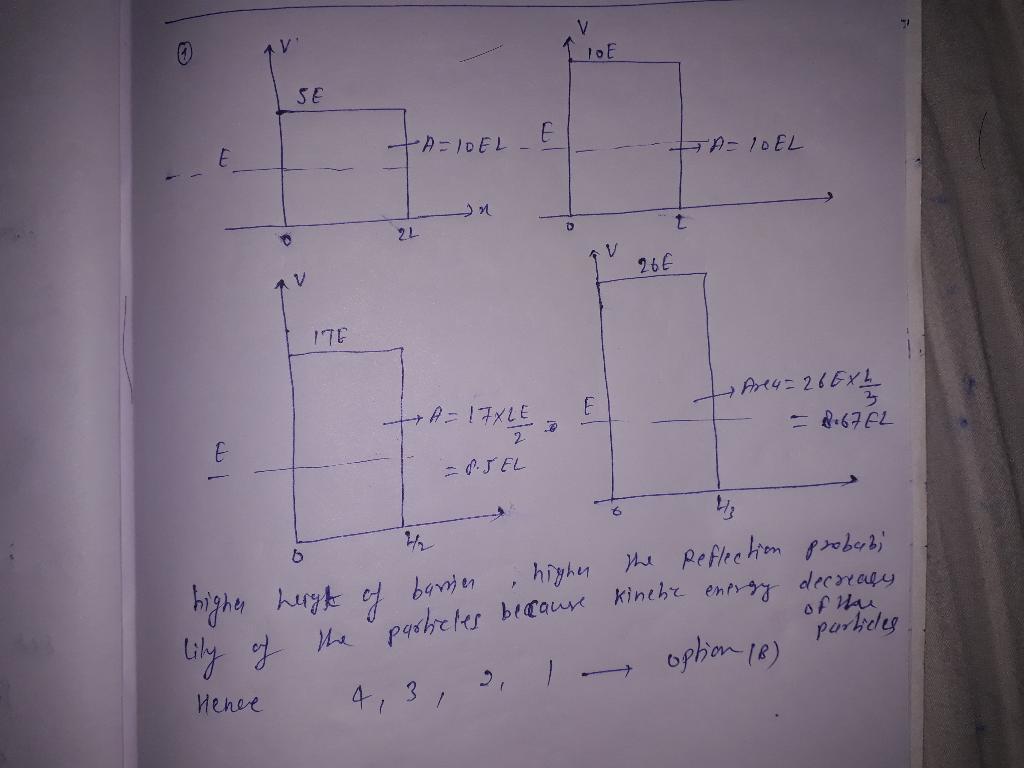 ①
V
5E
E
A = 10EL
0
2L
x
V
10E
E
A = 10EL
0
V
17E
E
A = 17 × LE/2
= 8.5 EL
0
L/2
V
26E
E
Area = 26E × L/3
= 8.67EL
0
L/3
higher height of barrier , higher the Reflection probabi
lity of the particles because kinetic energy decreases
of the
particles
Hence 4, 3, 2, 1 → option (B)